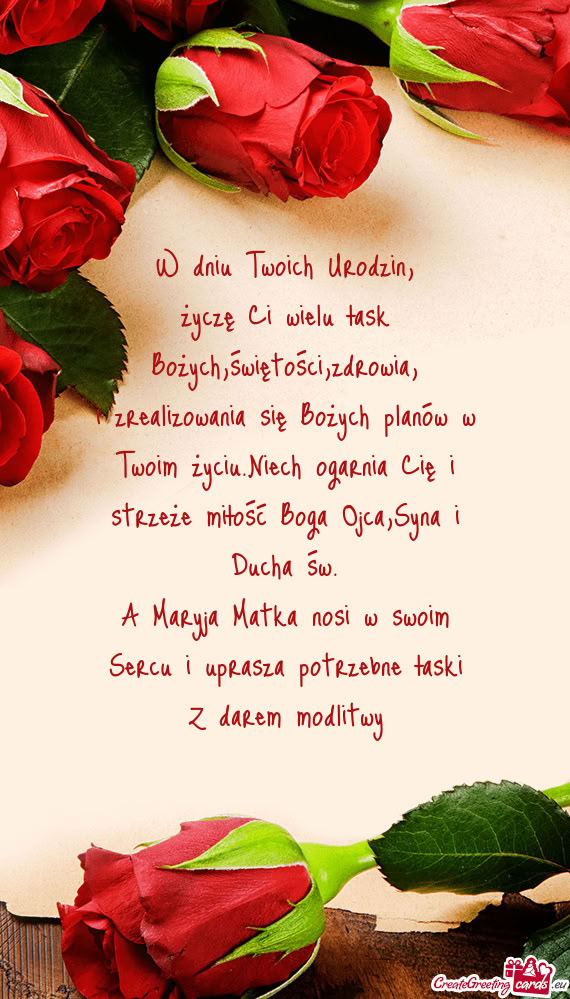 W dniu Twoich Urodzin,
życzę Ci wielu łask
Bożych,świętości,zdrowia,
i zrealizowania się Bożych planów w
Twoim życiu.Niech ogarnia Cię i
strzeże miłość Boga Ojca,Syna i
Ducha św.
A Maryja Matka nosi w swoim
Sercu i uprasza potrzebne łaski
Z darem modlitwy
CreateGreetingcards.eu